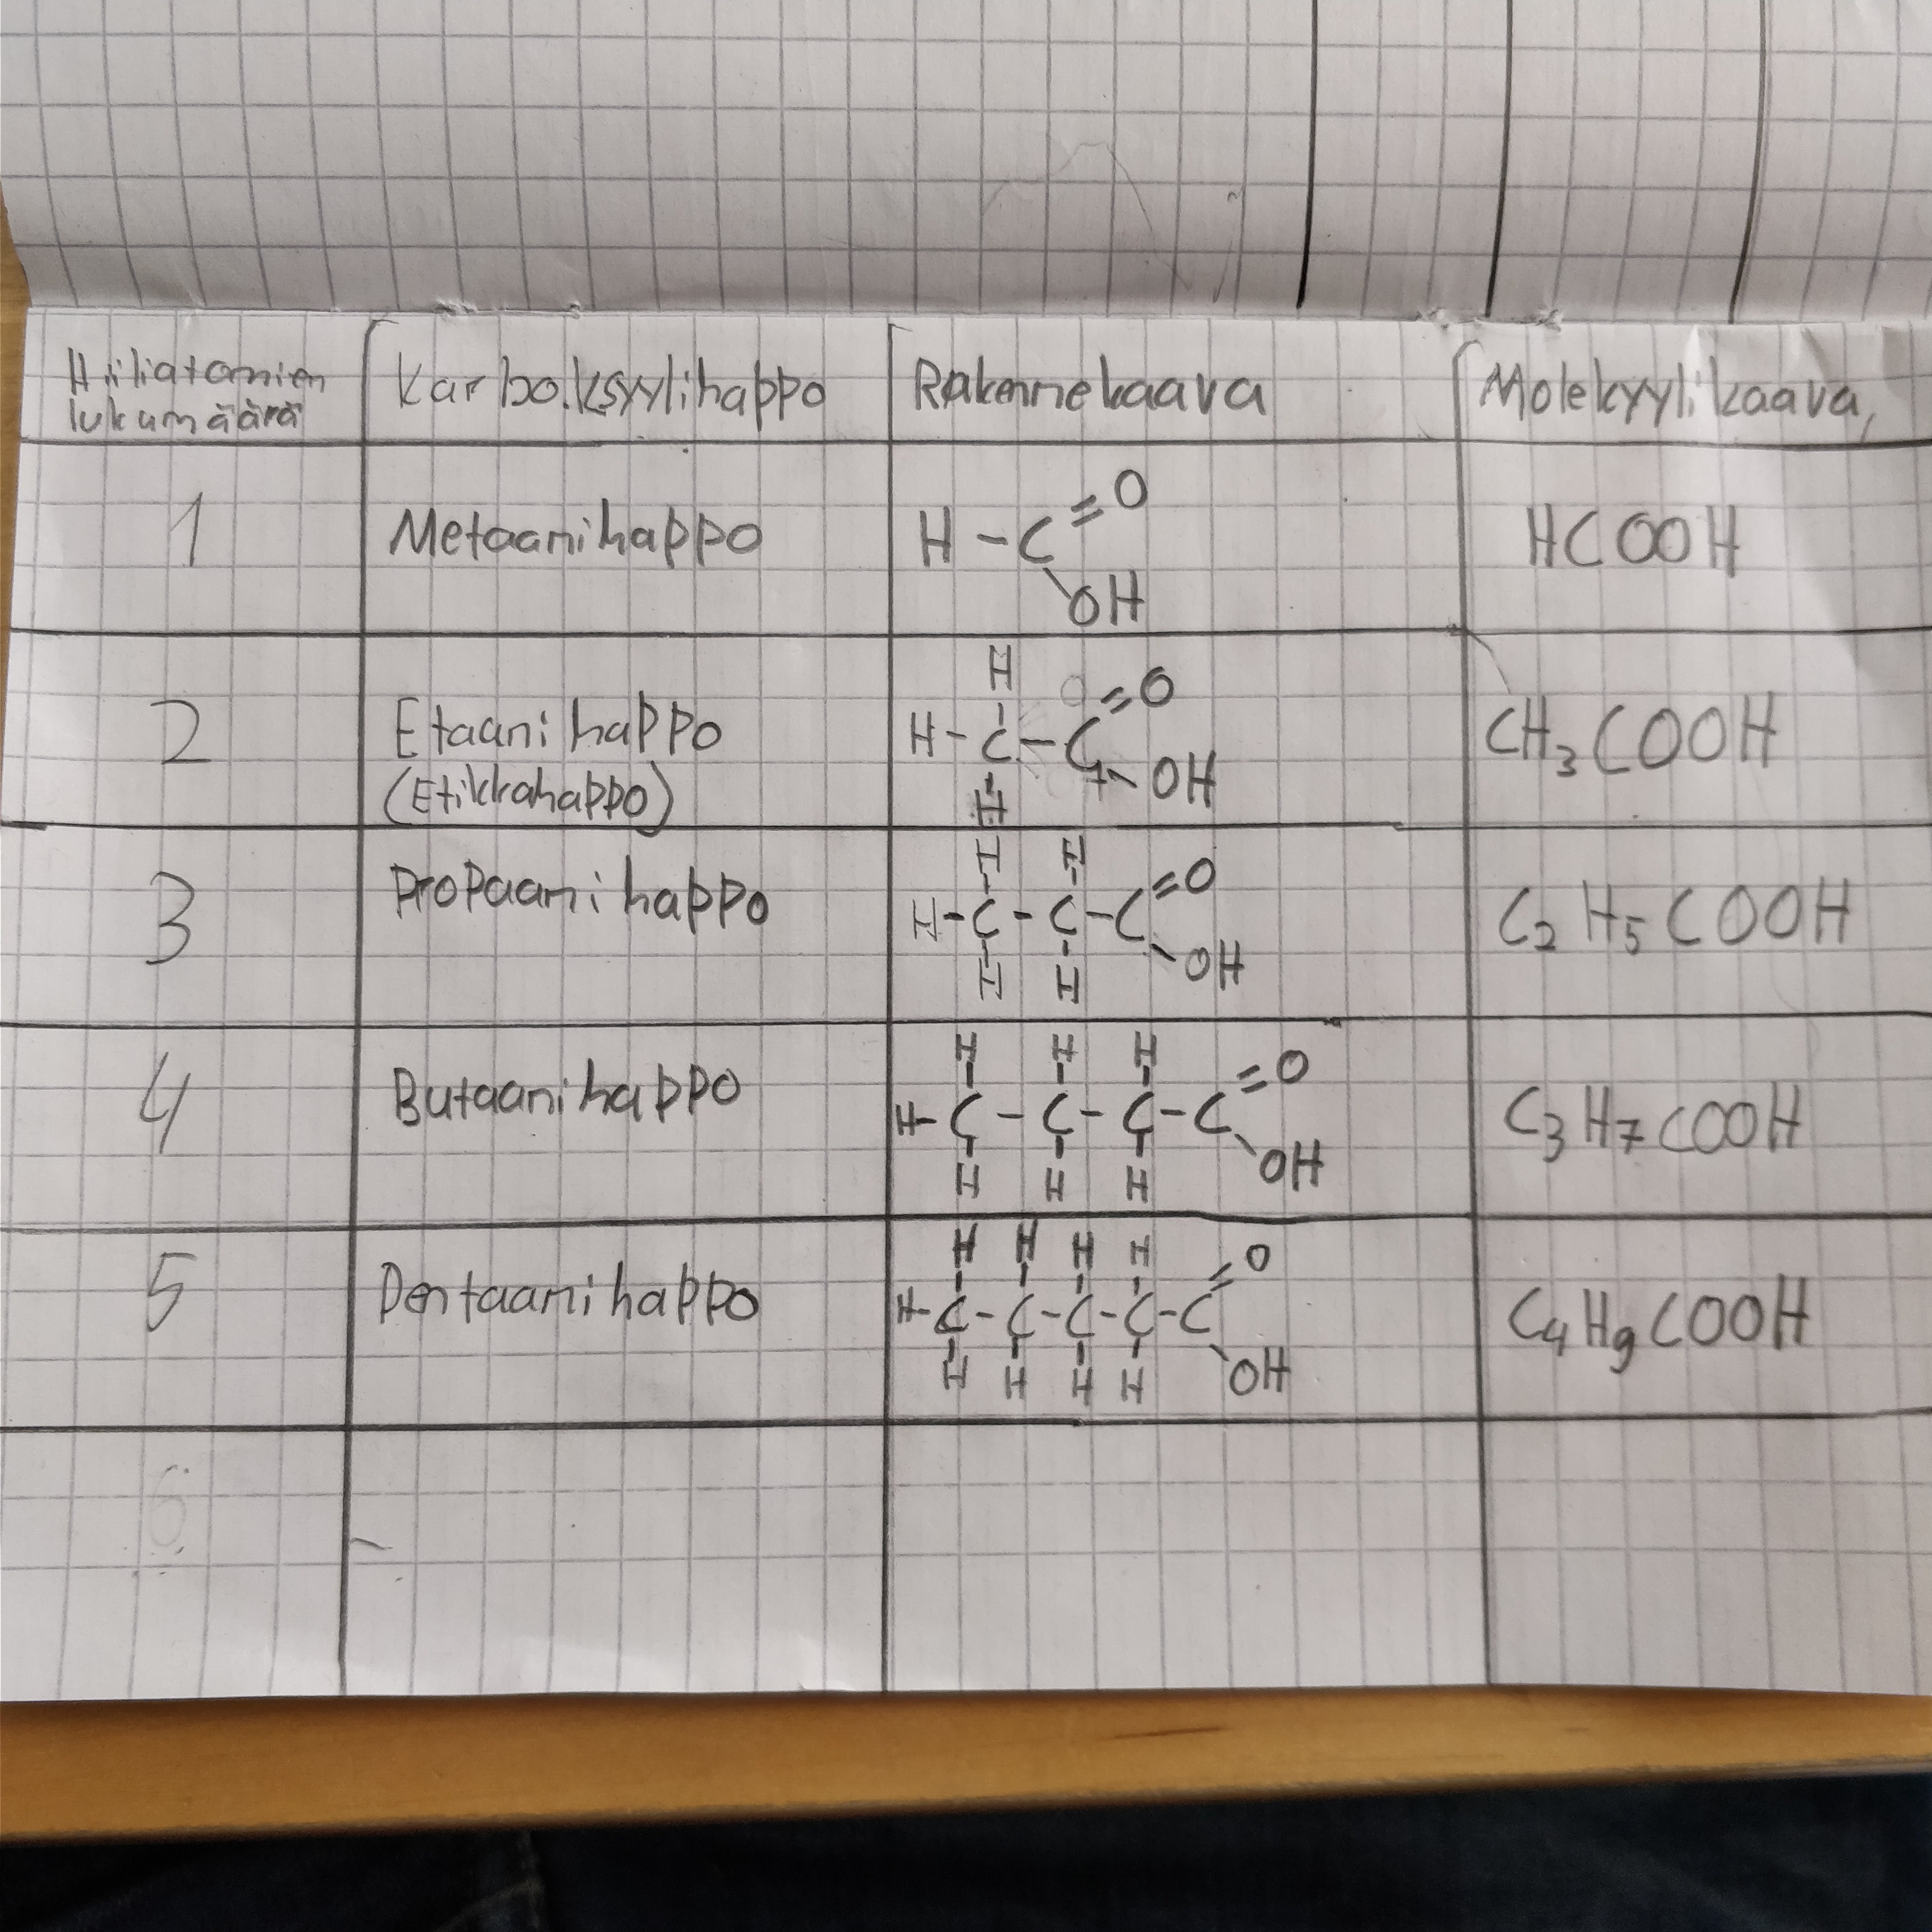 Hiiliatomien lukumäärä
Karboksyylihappo
Rakennekaava
Molekyylikaava
1
Metaanihappo
H - C = O
OH
HCOOH
2
Etaanihappo
(Etikkahappo)
H
H - C - C = O
OH
H
CH₃COOH
3
Propaanihappo
H H
H - C - C - C = O
OH
H H
C₂H₅COOH
4
Butaanihappo
H H H
H - C - C - C - C = O
OH
H H H
C₃H₇COOH
5
Pentaanihappo
H H H H
H - C - C - C - C - C = O
OH
H H H H
C₄H₉COOH
6